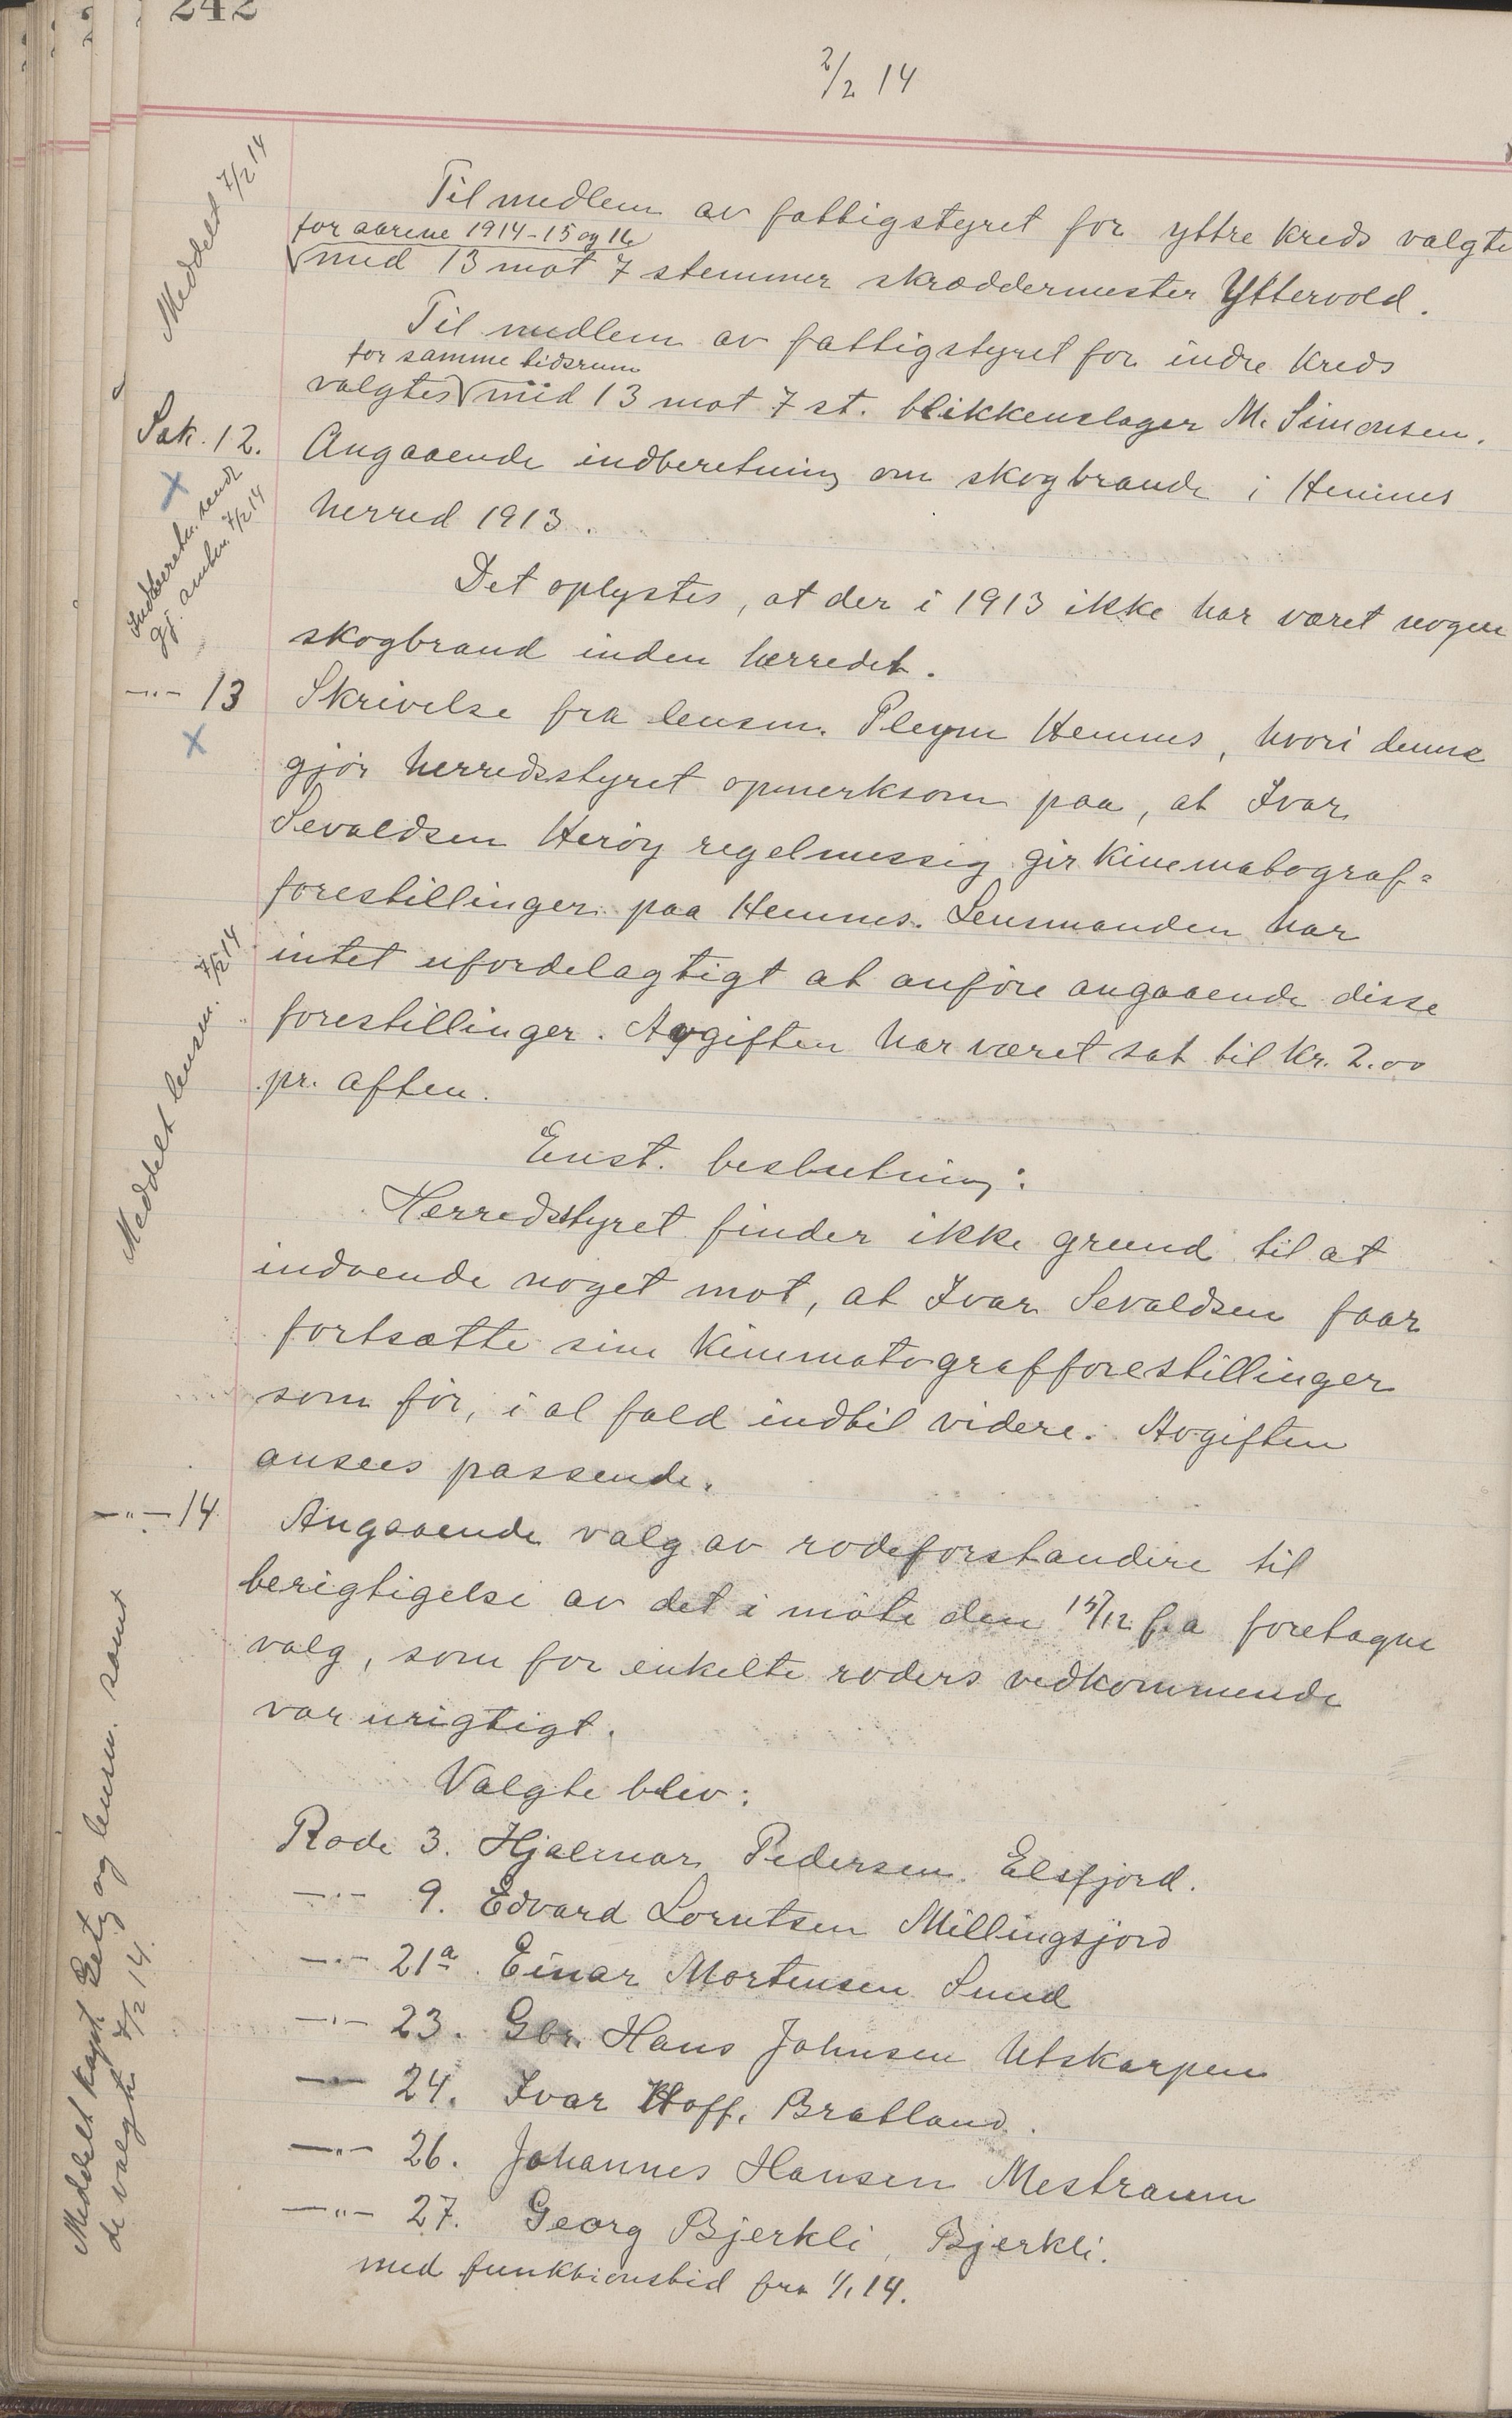 242
2/2 14
Meddelt 7/2 14
Til medlem av fattigstyret for yttre kreds valgte
for aarene 1914-15 og 16
med 13 mot 7 stemmer skræddermester Yttervold.
Til medlem av fattigstyret for indre kreds
for samme tidsrum
valgtes med 13 mot 7 st. blikkenslager M. Simonsen.
Sak. 12. Angaaende indberetning om skogbrande i Hemnes
herred 1913.
Indberetn. sendt
gj. amtm. 7/2 14
Det oplystes, at der i 1913 ikke har været nogen
skogbrand inden herredet.
-"- 13 Skrivelse fra lensm. Pleym Hemnes, hvori denne
gjør herredsstyret opmerksom paa, at Ivar
Sevaldsen Herøy regelmessig gir kinematograf=
forestillinger paa Hemnes. Lensmanden har
intet ufordelagtigt at anføre angaaende disse
forestillinger. Avgiften har været sat til kr. 2.00
pr. aften.
Meddelt lensm. 7/2 14
Enst. beslutning:
Herredsstyret finder ikke grund til at
indvende noget mot, at Ivar Sevaldsen faar
fortsætte sine kinematografforestillinger
som før, i al fald indtil videre. Avgiften
ansees passende.
-"- 14 Angaaende valg av rodeforstandere til
berigtigelse av det i møte den 15/12 f.a foretagne
valg, som for enkelte roders vedkommende
var urigtigt.
Valgte blev:
Rode 3. Hjalmar Pedersen Elsfjord.
-"- 9. Edvard Lorntsen Millingsjord
-"- 21a. Einar Mortensen Sund
-"- 23. Gbr. Hans Johnsen Utskarpen
-"- 24. Ivar Hoff, Bratland.
-"- 26. Johannes Hansen Mestraum
-"- 27. Georg Bjerkli, Bjerkli.
med funktionstid fra 1/1 14.
Meddelt kapt. og lensm. samt
de valgte 7/2 14.